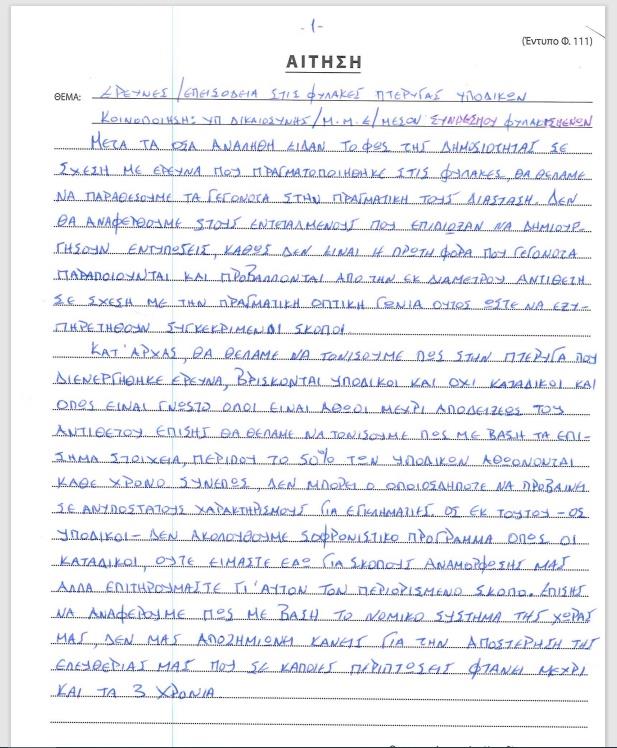 - 1 -
(Έντυπο Φ. 111)
ΑΙΤΗΣΗ
ΘΕΜΑ: ΕΡΕΥΝΕΣ / ΕΠΕΙΣΟΔΕΙΑ ΣΤΙΣ ΦΥΛΑΚΕΣ ΠΤΕΡΥΓΑΣ ΥΠΟΔΙΚΩΝ
ΚΟΙΝΟΠΟΙΗΣΗ: ΥΠ ΔΙΚΑΙΟΣΥΝΗΣ / Μ.Μ.Ε / ΜΕΣΟΝ ΣΥΝΔΕΣΜΟΥ ΦΥΛΑΚΙΣΜΕΝΩΝ
ΜΕΤΑ ΤΑ ΟΣΑ ΑΝΑΛΗΘΗ ΕΙΔΑΝ ΤΟ ΦΩΣ ΤΗΣ ΔΗΜΟΣΙΟΤΗΤΑΣ ΣΕ
ΣΧΕΣΗ ΜΕ ΕΡΕΥΝΑ ΠΟΥ ΠΡΑΓΜΑΤΟΠΟΙΗΘΗΚΕ ΣΤΙΣ ΦΥΛΑΚΕΣ, ΘΑ ΘΕΛΑΜΕ
ΝΑ ΠΑΡΑΘΕΣΟΥΜΕ ΤΑ ΓΕΓΟΝΟΤΑ ΣΤΗΝ ΠΡΑΓΜΑΤΙΚΗ ΤΟΥΣ ΔΙΑΣΤΑΣΗ. ΔΕΝ
ΘΑ ΑΝΑΦΕΡΘΟΥΜΕ ΣΤΟΥΣ ΕΝΤΕΤΑΛΜΕΝΟΥΣ ΠΟΥ ΕΠΙΔΙΩΞΑΝ ΝΑ ΔΗΜΙΟΥΡ-
ΓΗΣΟΥΝ ΕΝΤΥΠΩΣΕΙΣ, ΚΑΘΩΣ ΔΕΝ ΕΙΝΑΙ Η ΠΡΩΤΗ ΦΟΡΑ ΠΟΥ ΓΕΓΟΝΟΤΑ
ΠΑΡΑΠΟΙΟΥΝΤΑΙ ΚΑΙ ΠΡΟΒΑΛΛΟΝΤΑΙ ΑΠΟ ΤΗΝ ΕΚ ΔΙΑΜΕΤΡΟΥ ΑΝΤΙΘΕΤΗ
ΣΕ ΣΧΕΣΗ ΜΕ ΤΗΝ ΠΡΑΓΜΑΤΙΚΗ ΟΠΤΙΚΗ ΓΩΝΙΑ ΟΥΤΟΣ ΩΣΤΕ ΝΑ ΕΞΥ-
ΠΗΡΕΤΗΘΟΥΝ ΣΥΓΚΕΚΡΙΜΕΝΟΙ ΣΚΟΠΟΙ.
ΚΑΤ' ΑΡΧΑΣ, ΘΑ ΘΕΛΑΜΕ ΝΑ ΤΟΝΙΣΟΥΜΕ ΠΩΣ ΣΤΗΝ ΠΤΕΡΥΓΑ ΠΟΥ
ΔΙΕΝΕΡΓΗΘΗΚΕ ΕΡΕΥΝΑ, ΒΡΙΣΚΟΝΤΑΙ ΥΠΟΔΙΚΟΙ ΚΑΙ ΟΧΙ ΚΑΤΑΔΙΚΟΙ ΚΑΙ
ΟΠΩΣ ΕΙΝΑΙ ΓΝΩΣΤΟ ΟΛΟΙ ΕΙΝΑΙ ΑΘΩΟΙ ΜΕΧΡΙ ΑΠΟΔΕΙΞΕΩΣ ΤΟΥ
ΑΝΤΙΘΕΤΟΥ. ΕΠΙΣΗΣ ΘΑ ΘΕΛΑΜΕ ΝΑ ΤΟΝΙΣΟΥΜΕ ΠΩΣ ΜΕ ΒΑΣΗ ΤΑ ΕΠΙ-
ΣΗΜΑ ΣΤΟΙΧΕΙΑ, ΠΕΡΙΠΟΥ ΤΟ 50% ΤΩΝ ΥΠΟΔΙΚΩΝ ΑΘΩΟΝΟΝΤΑΙ
ΚΑΘΕ ΧΡΟΝΟ. ΣΥΝΕΠΩΣ, ΔΕΝ ΜΠΟΡΕΙ Ο ΟΠΟΙΟΣΔΗΠΟΤΕ ΝΑ ΠΡΟΒΑΙΝΕΙ
ΣΕ ΑΝΥΠΟΣΤΑΤΟΥΣ ΧΑΡΑΚΤΗΡΙΣΜΟΥΣ ΓΙΑ ΕΓΚΛΗΜΑΤΙΕΣ. ΩΣ ΕΚ ΤΟΥΤΟΥ - ΩΣ
ΥΠΟΔΙΚΟΙ - ΔΕΝ ΑΚΟΛΟΥΘΟΥΜΕ ΣΩΦΡΟΝΙΣΤΙΚΟ ΠΡΟΓΡΑΜΜΑ ΟΠΩΣ ΟΙ
ΚΑΤΑΔΙΚΟΙ, ΟΥΤΕ ΕΙΜΑΣΤΕ ΕΔΩ ΓΙΑ ΣΚΟΠΟΥΣ ΑΝΑΜΟΡΦΩΣΗΣ ΜΑΣ
ΑΛΛΑ ΕΠΙΤΗΡΟΥΜΑΣΤΕ ΓΙ' ΑΥΤΟΝ ΤΟΝ ΠΕΡΙΟΡΙΣΜΕΝΟ ΣΚΟΠΟ. ΕΠΙΣΗΣ
ΝΑ ΑΝΑΦΕΡΟΥΜΕ ΠΩΣ ΜΕ ΒΑΣΗ ΤΟ ΝΟΜΙΚΟ ΣΥΣΤΗΜΑ ΤΗΣ ΧΩΡΑΣ
ΜΑΣ, ΔΕΝ ΜΑΣ ΑΠΟΖΗΜΙΩΝΕΙ ΚΑΝΕΙΣ ΓΙΑ ΤΗΝ ΑΠΟΣΤΕΡΗΣΗ ΤΗΣ
ΕΛΕΥΘΕΡΙΑΣ ΜΑΣ ΠΟΥ ΣΕ ΚΑΠΟΙΕΣ ΠΕΡΙΠΤΩΣΕΙΣ ΦΤΑΝΕΙ ΜΕΧΡΙ
ΚΑΙ ΤΑ 3 ΧΡΟΝΙΑ